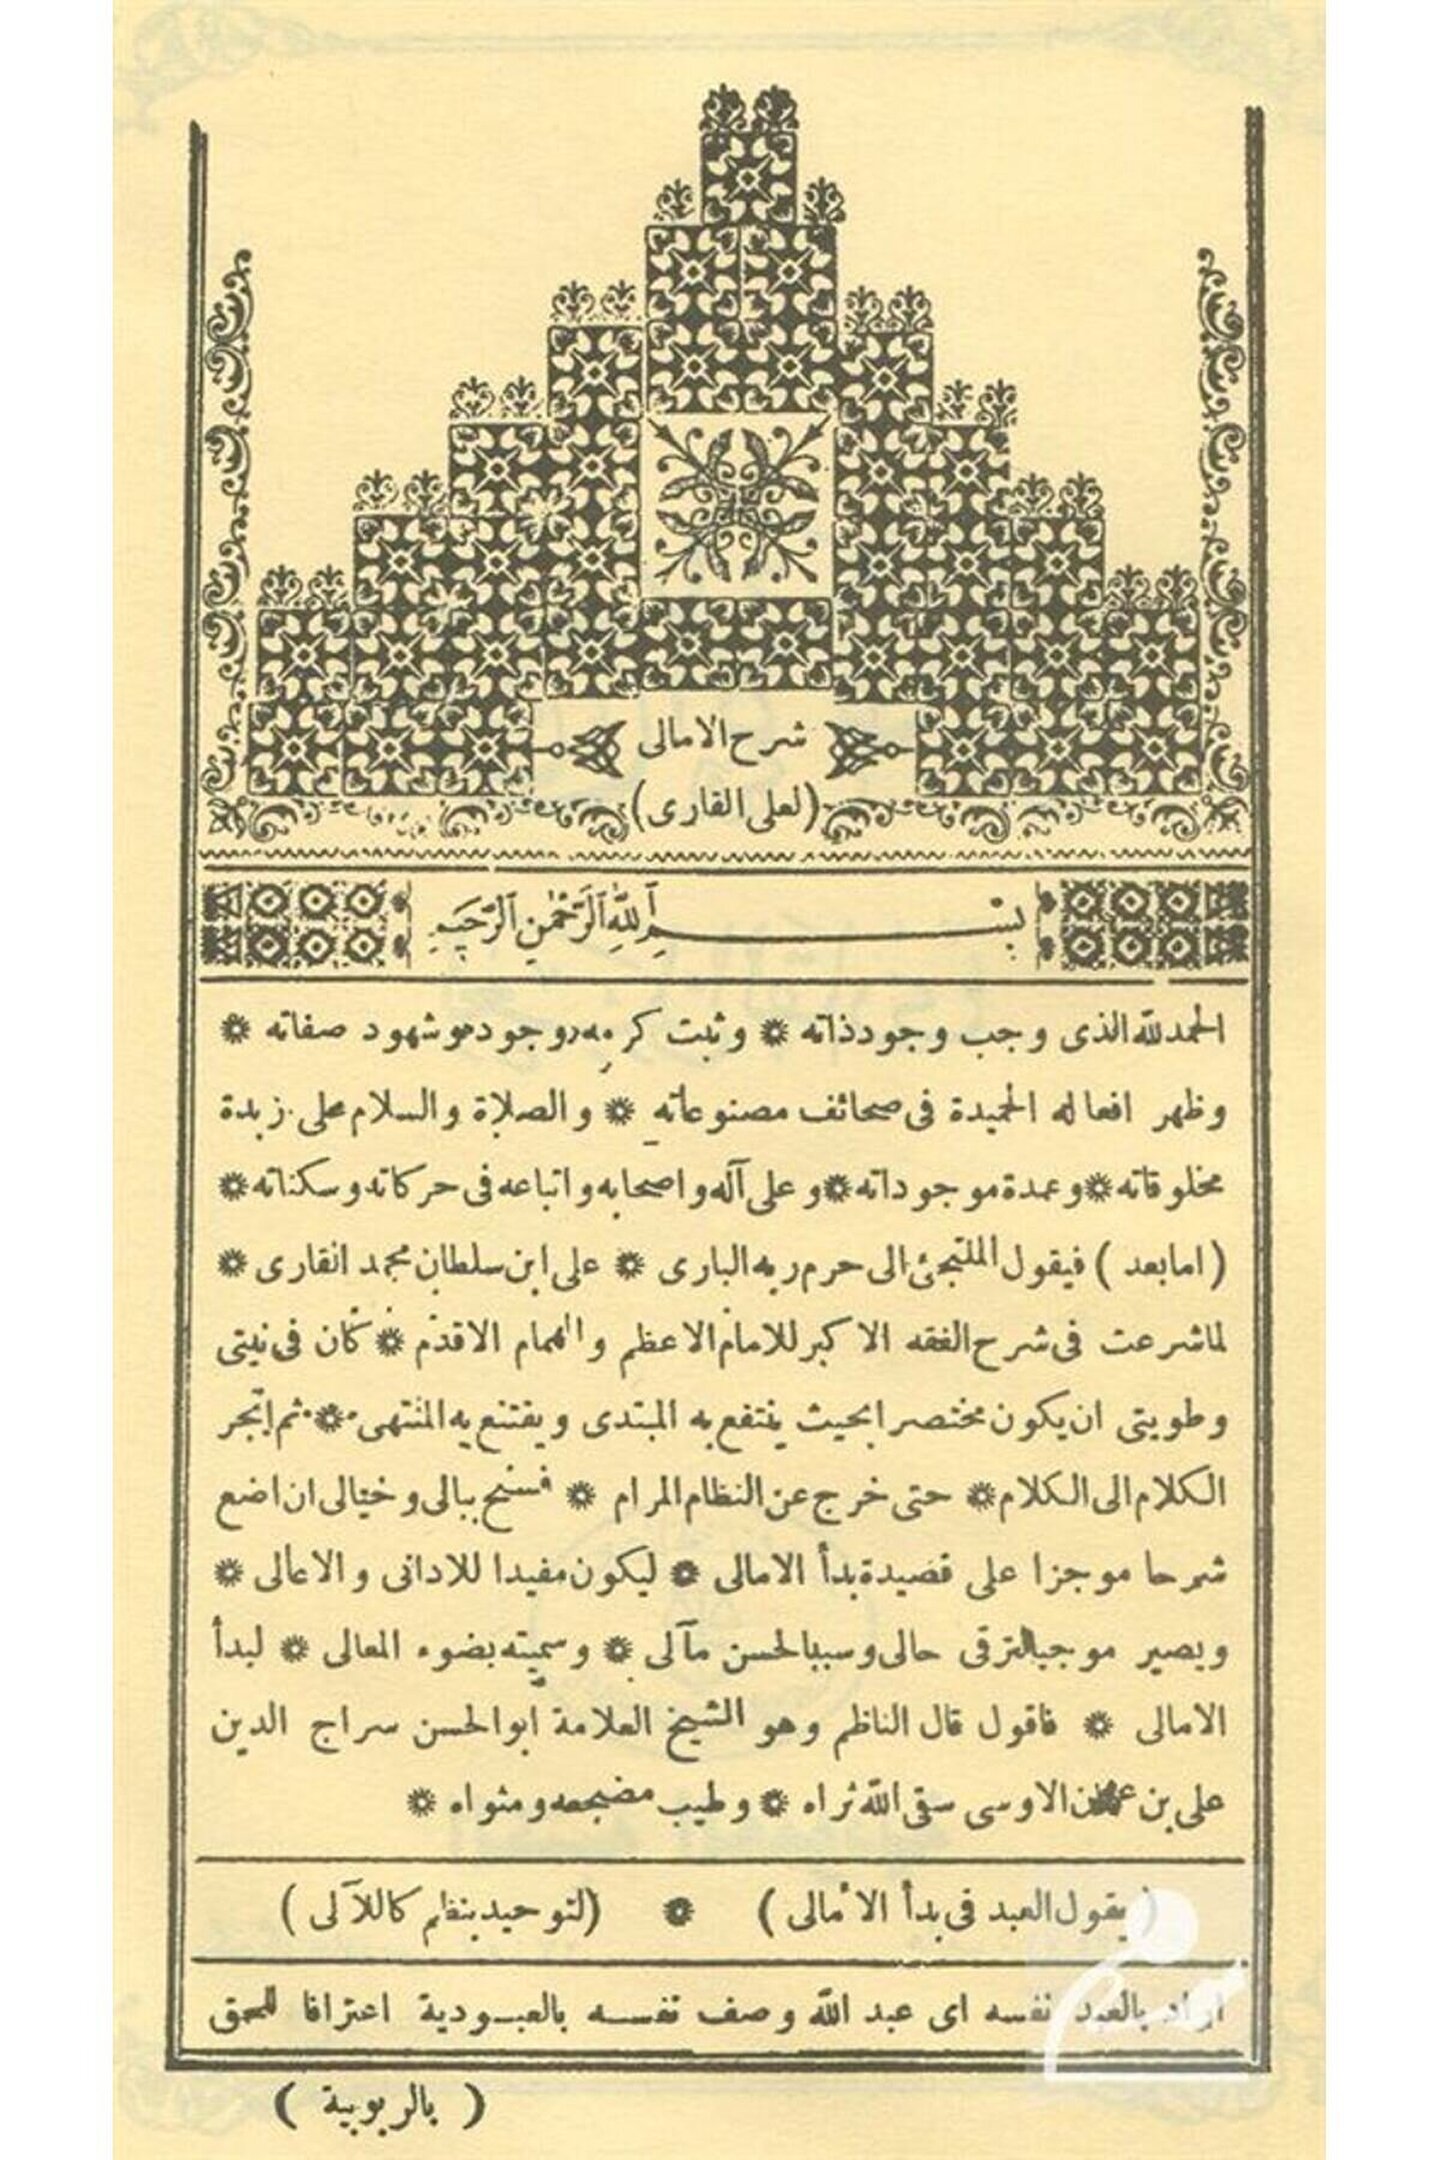 شرح الامالى
(لعلى القارى)
بِسْمِ ٱللَّهِ ٱلرَّحْمٰنِ ٱلرَّحِيمِ
الحمدلله الذى وجب وجود ذاته * وثبت كرمه وجوده وشهود صفاته *
وظهر افعاله الحميدة فى صحائف مصنوعاته * والصلاة والسلام على زبدة
مخلوقاته * وعمدة موجوداته * وعلى آله واصحابه واتباعه فى حركاته وسكناته *
(امابعد) فيقول الملتجئ الى حرم ربه البارى * على ابن سلطان محمد القارى *
لما شرعت فى شرح الفقه الاكبر للامام الاعظم والهمام الاقدم * كان فى نيتى
وطويتى ان يكون مختصرا بحيث ينتفع به المبتدى ويقتنع به المنتهى * ثم انجر
الكلام الى الكلام * حتى خرج عن النظام المرام * فسنح ببالى وخيالى ان اضع
شرحا موجزا على قصيدة بدأ الامالى * ليكون مفيدا للادانى والاعالى *
ويصير موجبا لترقى حالى وسببا لحسن مآلى * وسميته بضوء المعالى * لبدأ
الامالى * فاقول قال الناظم وهو الشيخ العلامة ابوالحسن سراج الدين
على بن عثمان الاوسى سقى الله ثراه * وطيب مضجعه ومثواه *
(يقول العبد فى بدأ الامالى) * (لتوحيد بنظم كاللآلى)
اراد بالعبد نفسه اى عبد الله وصف نفسه بالعبودية اعترافا للحق
(بالربوبية)